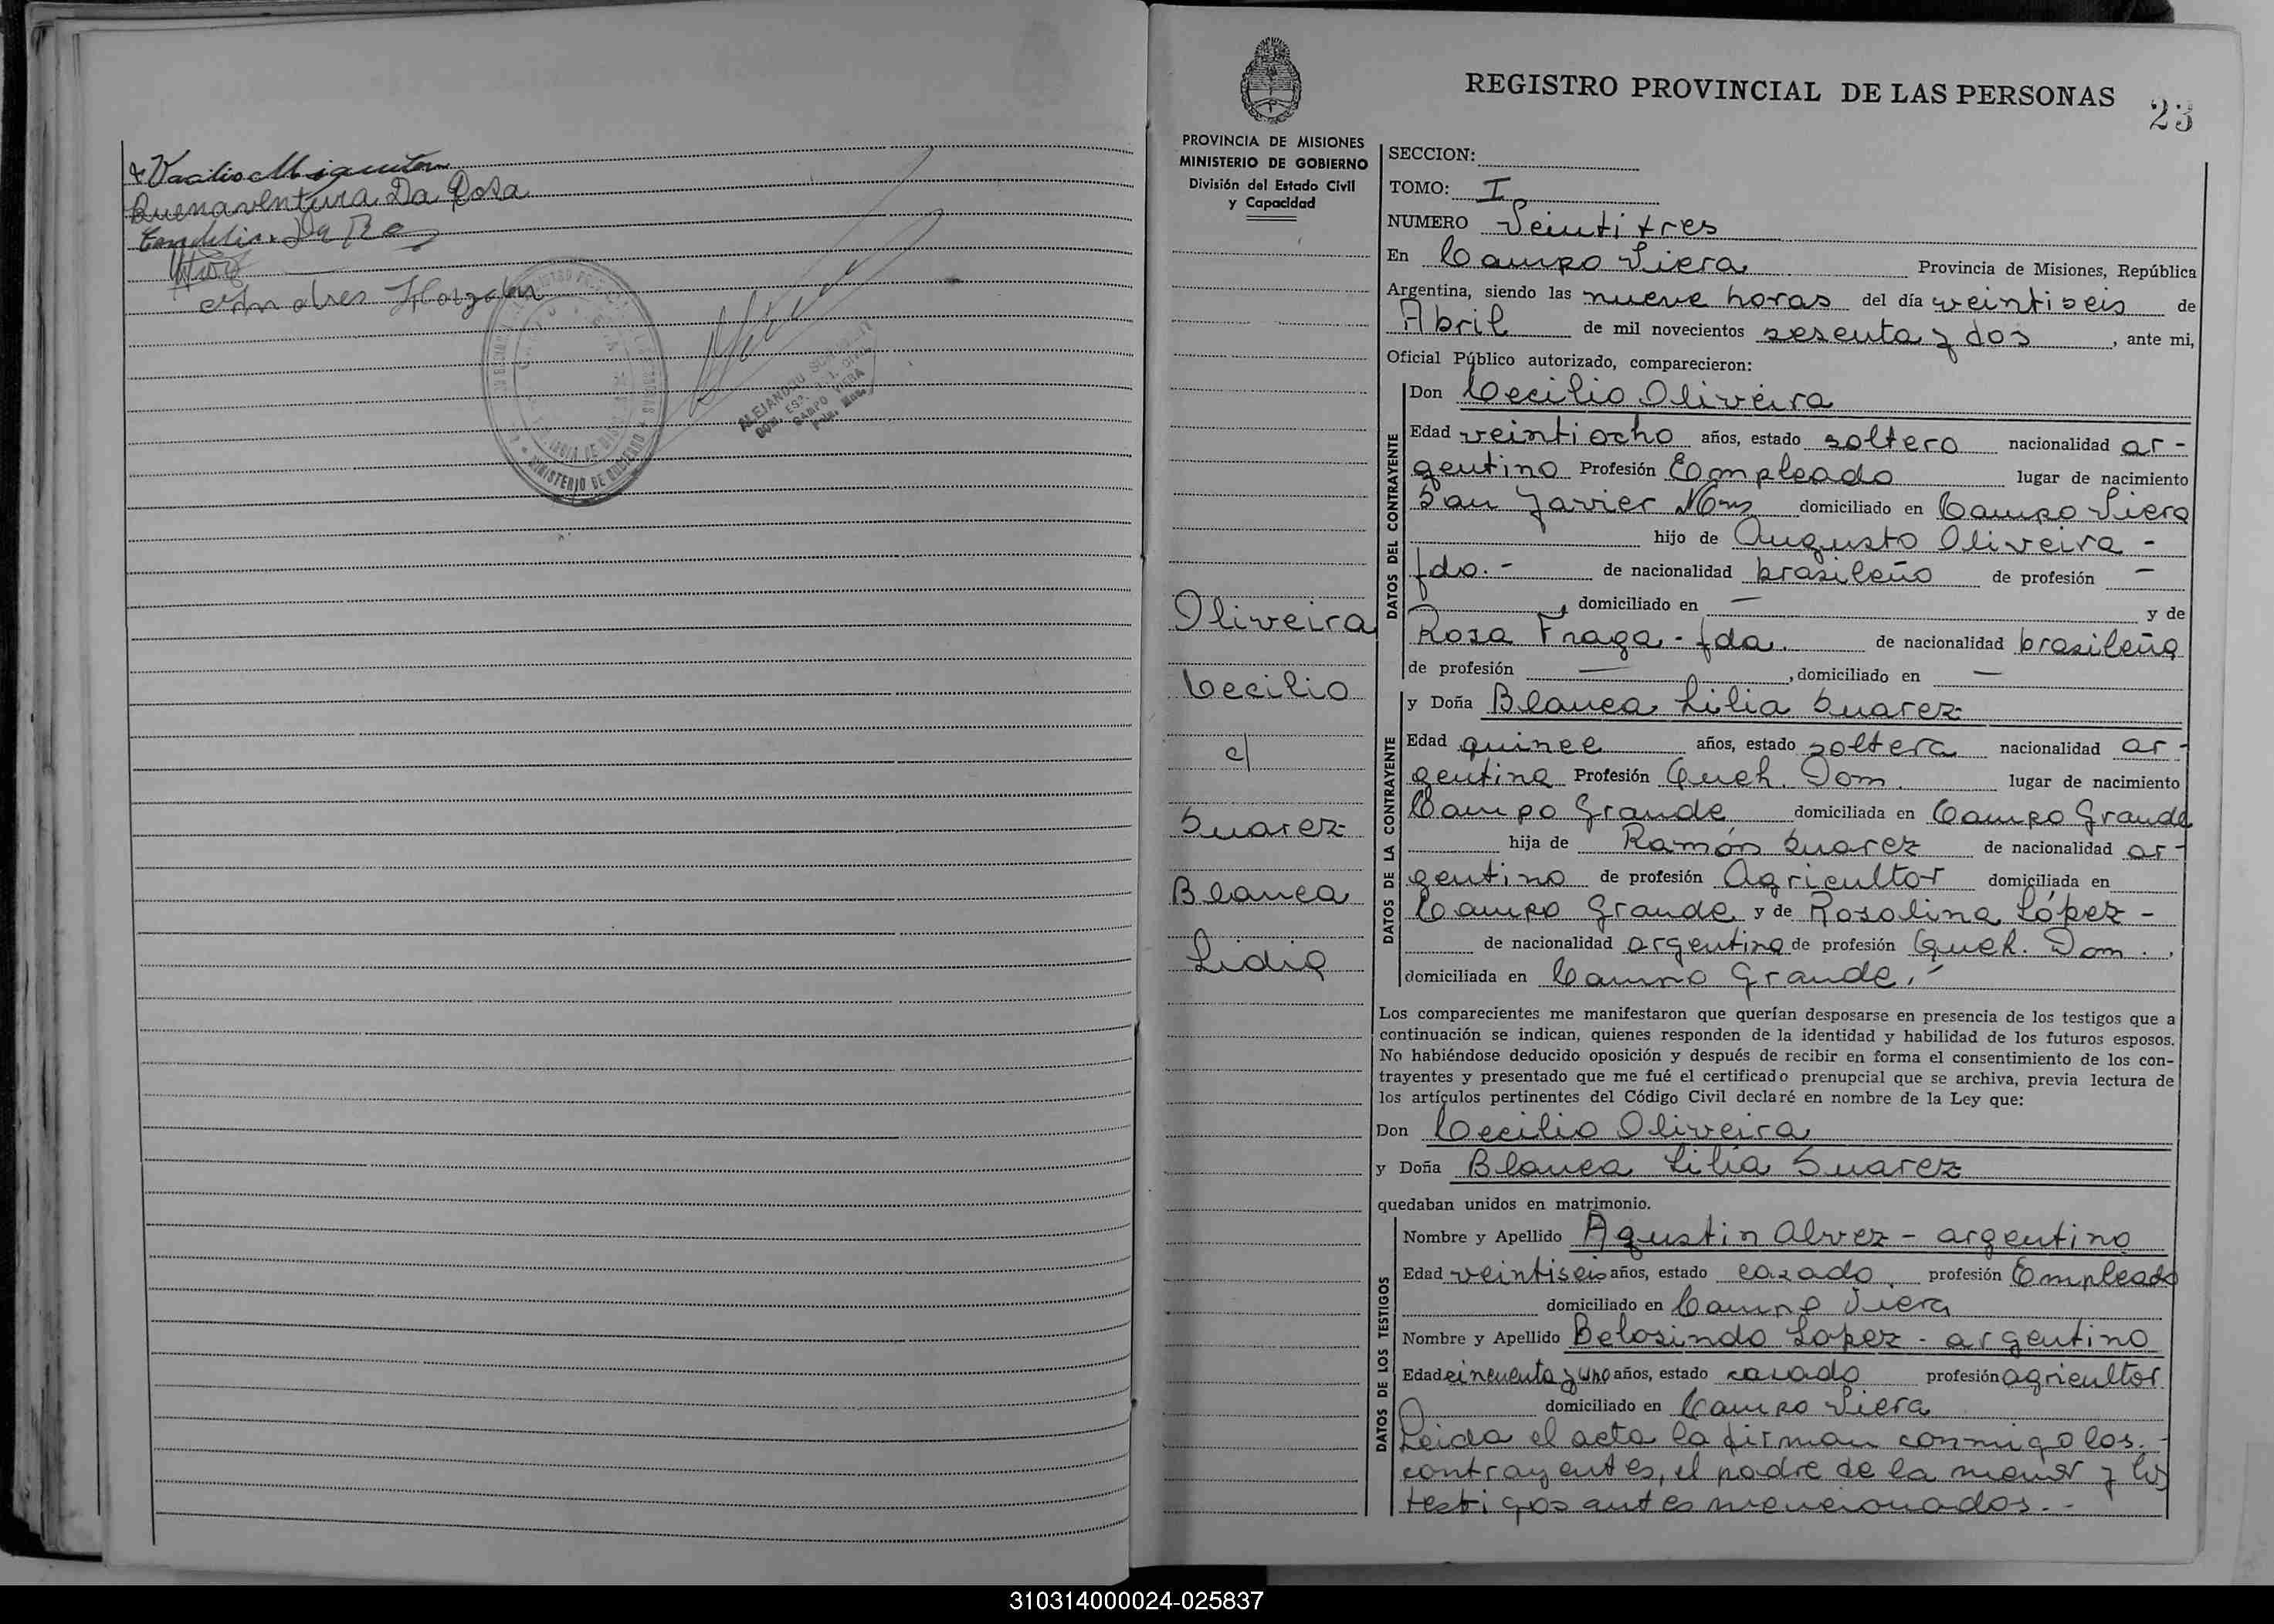 Buenaventura Da Rosa
REGISTRO PROVINCIAL DE LAS PERSONAS
23
PROVINCIA DE MISIONES
MINISTERIO DE GOBIERNO
División del Estado Civil
y Capacidad
SECCION:
TOMO: I
NUMERO Veintitres
En Campo Viera Provincia de Misiones, República
Argentina, siendo las nueve horas del día veintiseis de
Abril de mil novecientos sesenta y dos, ante mi,
Oficial Público autorizado, comparecieron:
DATOS DEL CONTRAYENTE
Don Cecilio Oliveira
Edad veintiocho años, estado soltero nacionalidad ar-
gentino Profesión Empleado lugar de nacimiento
San Javier Mnes domiciliado en Campo Viera
hijo de Augusto Oliveira -
fdo. - de nacionalidad brasileño de profesión -
, domiciliado en - y de
Rosa Fraga - fda. de nacionalidad brasileña
de profesión - , domiciliado en -
Oliveira
Cecilio
c/
Suarez
Blanca
Lidia
DATOS DE LA CONTRAYENTE
y Doña Blanca Lilia Suarez
Edad quince años, estado soltera nacionalidad ar-
gentina Profesión Queh. Dom. lugar de nacimiento
Campo Grande domiciliada en Campo Grande
hija de Ramón Suarez de nacionalidad ar-
gentino de profesión Agricultor domiciliada en
Campo Grande y de Rosolina López -
de nacionalidad argentina de profesión Queh. Dom.,
domiciliada en Campo Grande. -
Los comparecientes me manifestaron que querían desposarse en presencia de los testigos que a
continuación se indican, quienes responden de la identidad y habilidad de los futuros esposos.
No habiéndose deducido oposición y después de recibir en forma el consentimiento de los con-
trayentes y presentado que me fué el certificado prenupcial que se archiva, previa lectura de
los artículos pertinentes del Código Civil declaré en nombre de la Ley que:
Don Cecilio Oliveira
y Doña Blanca Lilia Suarez
quedaban unidos en matrimonio.
DATOS DE LOS TESTIGOS
Nombre y Apellido Agustin Alvez - argentino
Edad veintiseis años, estado casado, profesión Empleado
domiciliado en Campo Viera
Nombre y Apellido Belosindo Lopez - argentino
Edad cincuenta y uno años, estado casado profesión agricultor
domiciliado en Campo Viera
Leida el acta la firman conmigo los
contrayentes, el padre de la menor y los
testigos antes mencionados. -
310314000024-025837